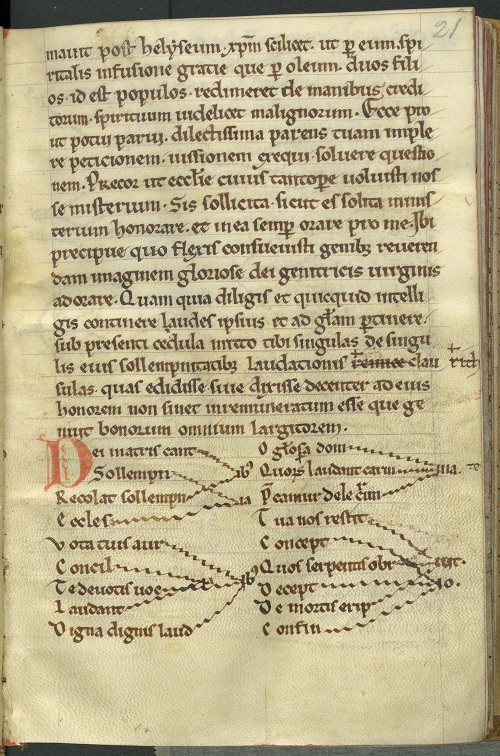 21
mavit post helyseum. xpm scilicet. ut p eum. spi
ritalis infusione gratie que p oleum. duos fili
os. id est populos. redimeret de manibus credi
torum. spirituum videlicet malignorum. Ecce pro
ut potui parvi. dilectissima parens tuam imple
re peticionem. iussionem exequi. soluere questio
nem. Precor ut ecclie cuius tantope voluisti nos
se misterium. Sis sollicita sicut es solita minis
terium honorare. et in ea semp orare pro me. Ibi
precipue quo flexis consuevisti genibz reveren
dam imaginem gloriose dei genitricis virginis
adorare. Quam quia diligis et quicquid intelli
gis continere laudes ipsius et ad glam ptinere.
sub presenti cedula mitto tibi singulas de singu
lis eius sollempnitatibz laudationis clau
sulas. quas edidisse sive dixisse decenter ad eius
honorem non sinet inremuneratum esse que ge
nuit bonorum omnium largitorem.
Dei matris cant
Sollempn ibz
Recolat sollempn
Eccles ia
Vota tuis aur
Concil
Te devotis voc ibz
Laudant
Digna dignis laud
O glosa dom
Quors laudant carm ina.
pcamur dele crim
Tua nos restit
Concept
Quos serpentis obr uit.
Decept io.
De mortis erip
Confin